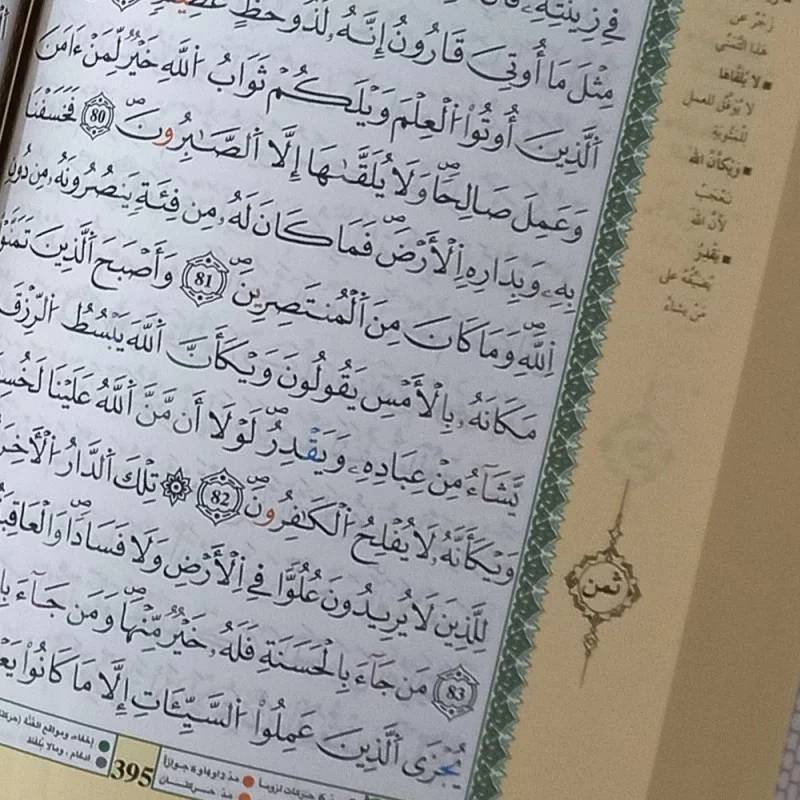 فِي زِينَتِهِۦ
مِثْلَ مَآ أُوتِيَ قَارُونُ إِنَّهُۥ لَذُو حَظٍّ عَظِيمٍ
ٱلَّذِينَ أُوتُوا۟ ٱلْعِلْمَ وَيْلَكُمْ ثَوَابُ ٱللَّهِ خَيْرٌ لِّمَنْ ءَامَنَ
وَعَمِلَ صَالِحًا وَلَا يُلَقَّىٰهَا إِلَّا ٱلصَّٰبِرُونَ 80 فَخَسَفْنَا
بِهِۦ وَبِدَارِهِ ٱلْأَرْضَ فَمَا كَانَ لَهُۥ مِن فِئَةٍ يَنصُرُونَهُۥ مِن دُونِ
ٱللَّهِ وَمَا كَانَ مِنَ ٱلْمُنتَصِرِينَ 81 وَأَصْبَحَ ٱلَّذِينَ تَمَنَّوْا۟
مَكَانَهُۥ بِٱلْأَمْسِ يَقُولُونَ وَيْكَأَنَّ ٱللَّهَ يَبْسُطُ ٱلرِّزْقَ
يَشَآءُ مِنْ عِبَادِهِۦ وَيَقْدِرُ لَوْلَآ أَن مَّنَّ ٱللَّهُ عَلَيْنَا
وَيْكَأَنَّهُۥ لَا يُفْلِحُ ٱلْكَٰفِرُونَ 82 تِلْكَ ٱلدَّارُ
لِلَّذِينَ لَا يُرِيدُونَ عُلُوًّا فِي ٱلْأَرْضِ وَلَا فَسَادًا
83 مَن جَآءَ بِٱلْحَسَنَةِ فَلَهُۥ خَيْرٌ مِّنْهَا وَمَن جَآءَ
يُجْزَى ٱلَّذِينَ عَمِلُوا۟ ٱلسَّيِّـَٔاتِ إِلَّا مَا كَانُوا۟
زَجْرٌ عن
هذا التَّمَنِّي
■ لا يُلَقَّاها
لا يُوَفَّقُ للعملِ
للمَثُوبَةِ
■ وَيْكَأَنَّ الله
نَعْجَبُ
لأنَّ الله
■ يَقْدِرُ
يُضَيِّقُهُ على
مَن يشاءُ
ثمن
395
إخفاء، ومواقع الغُنَّة
ادغام، ومالا يُلفَظ